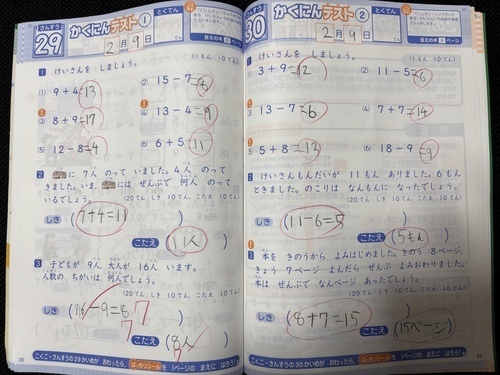 さんすう
29
かくにんテスト①
とくてん
2月9日
答えの本 ページ
1 けいさんを しましょう。
(1もん 10てん)
(1) 9+4=13
(2) 15-7=8
(3) 8+9=17
(4) 13-4=9
(5) 12-8=4
(6) 6+5=11
2 に 7人 のって いました。4人 のって
きました。いま、 には ぜんぶで 何人 のって
いるでしょう。
(20てん・しき 10てん、こたえ 10てん)
しき (7+4=11)
こたえ (11人)
3 子どもが 9人、大人が 16人 います。
人数の ちがいは 何人でしょう。
(20てん・しき 10てん、こたえ 10てん)
しき (16-9=8 7)
こたえ (8人)
7
こくご・さんすうの29かいめが おわったら、 を 1ページの まえに はろう!
さんすう
30
かくにんテスト②
とくてん
2月9日
答えの本 ページ
1 けいさんを しましょう。
(1もん 10てん)
(1) 3+9=12
(2) 11-5=6
(3) 13-7=6
(4) 7+7=14
(5) 5+8=13
(6) 18-9=9
2 けいさんもんだいが 11もん あります。6もん
ときました。のこりは なんもんに なったでしょう。
(20てん・しき 10てん、こたえ 10てん)
しき (11-6=5)
こたえ (5もん)
3 本を きのうから よみはじめました。きのう 8ページ、
きょう 7ページ よんだら ぜんぶ よみおわりました。
本は ぜんぶで なんページ あったでしょう。
(20てん・しき 10てん、こたえ 10てん)
しき (8+7=15)
こたえ (15ページ)
こくご・さんすうの30かいめが おわったら、 を 1ページの まえに はろう!